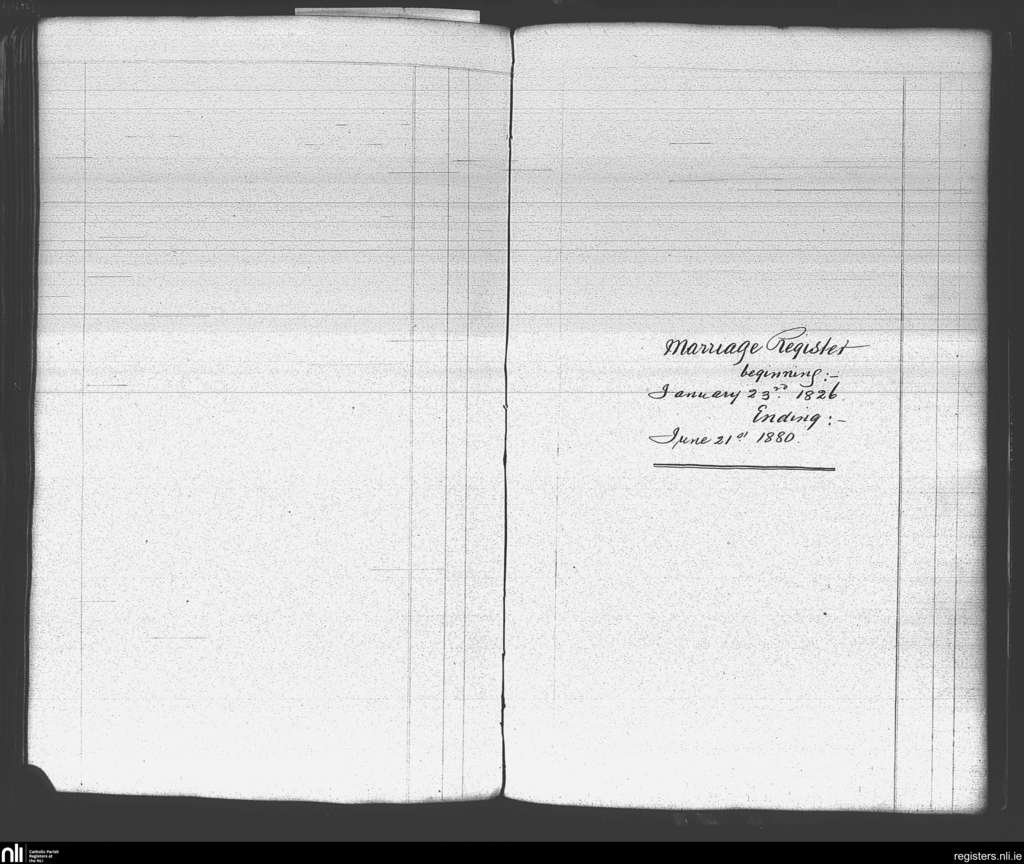 Marriage Register
beginning:-
January 23rd 1826.
Ending:-
June 21st 1880.
nli
Catholic Parish
Registers at
the NLI
registers.nli.ie